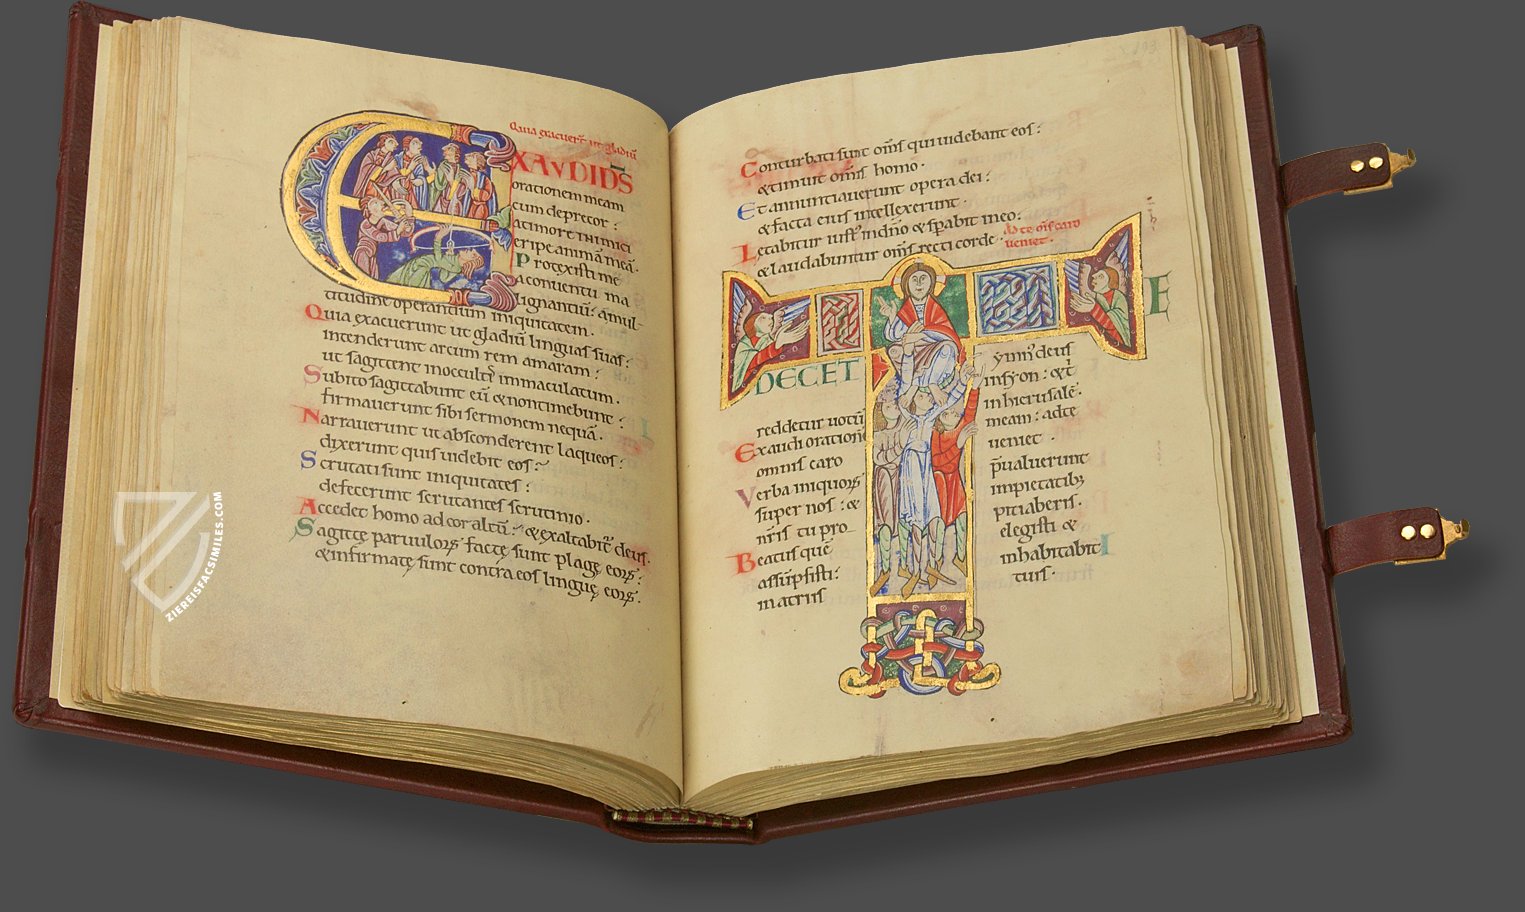 Quia exacuer̄t ut gladiū
EXAVDI D̄S
orationem meam
cum deprecor :
a timore inimici
eripe animā meā.
Protexisti me
a conuentu ma
lignantiū : a mul
titudine operantium iniquitatem.
Quia exacuerunt ut gladiū linguas suas :
intenderunt arcum rem amaram :
ut sagittent in occultis immaculatum.
Subito sagittabunt eū & non timebunt :
firmauerunt sibi sermonem nequā.
Narrauerunt ut absconderent laqueos :
dixerunt quis uidebit eos :
Scrutati sunt iniquitates :
defecerunt scrutantes scrutinio.
Accedet homo ad cor altū : & exaltabit᷑ deus.
Sagittę paruulorꝝ factę sunt plagę eorꝝ :
& infirmatę sunt contra eos linguę eorꝝ.
Conturbati sunt om̄s qui uidebant eos :
& timuit om̄s homo.
Et annuntiauerunt opera dei :
& facta eius intellexerunt.
Letabitur iust᷒ in dn̄o & sp̄abit in eo :
& laudabuntur om̄s recti corde.
Ad te om̄s caro
ueniet.
TE
DECET
ymn᷒ deus
in syon : & t̄
reddetur uotū
in hierusalē.
Exaudi orationē
meam : ad te
omnis caro
ueniet.
Verba iniquorꝝ
p̄ualuerunt
super nos : &
impietatibꝫ
nr̄is tu pro
pitiaberis.
Beatus quē
elegisti &
assūpsisti :
inhabitabit
in atriis
tuis.
ZIEREISFACSIMILES.COM